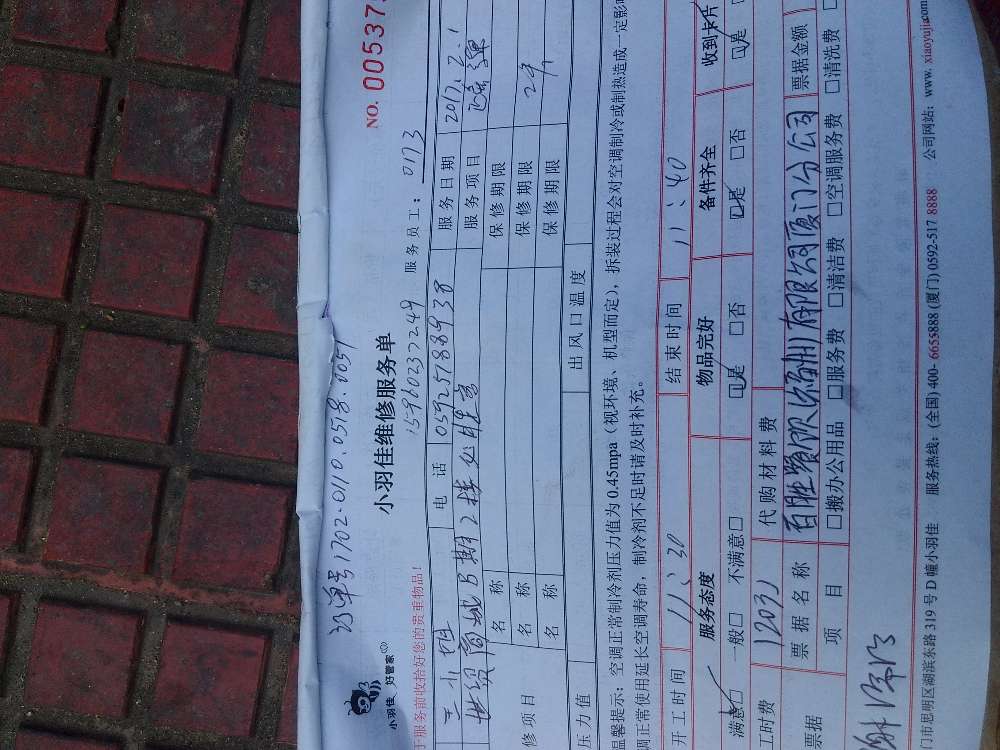 订单号1702.0110.0518.0051
小羽佳 好管家
小羽佳维修服务单
NO. 00537
15960237249 服务员工：0173
于服务前收拾好您的贵重物品！
王小 电 话 05925788938 服务日期 2017.2.1
世贸商城B期2楼必胜客 服务项目
修项目 名 称 保修期限
名 称 保修期限 2个
名 称 保修期限
压力值 出风口温度
温馨提示：空调正常制冷剂压力值为0.45mpa（视环境、机型而定），拆装过程会对空调制冷或制热造成一定影响
调正常使用延长空调寿命，制冷剂不足时请及时补充。
开工时间 11：30 结束时间 11：40
服务态度 物品完好 备件齐全 收到卡片
满意□ 一般□ 不满意□ □是 □否 □是 □否 □是
工时费 120元 代购材料费
票据 票据名称 百胜餐饮(福州)有限公司厦门分公司 票据金额
项 目 □搬办公用品 □服务费 □清洁费 □空调服务费 □清洗费
门市思明区湖滨东路319号D幢小羽佳 服务热线：(全国)400-6655888 (厦门)0592-517 8888 公司网站：www. xiaoyujia.com